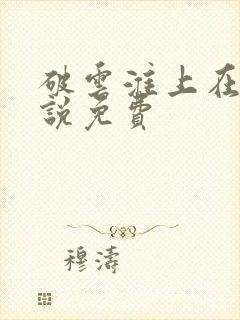 破雲淮上在
說免費
穆濤